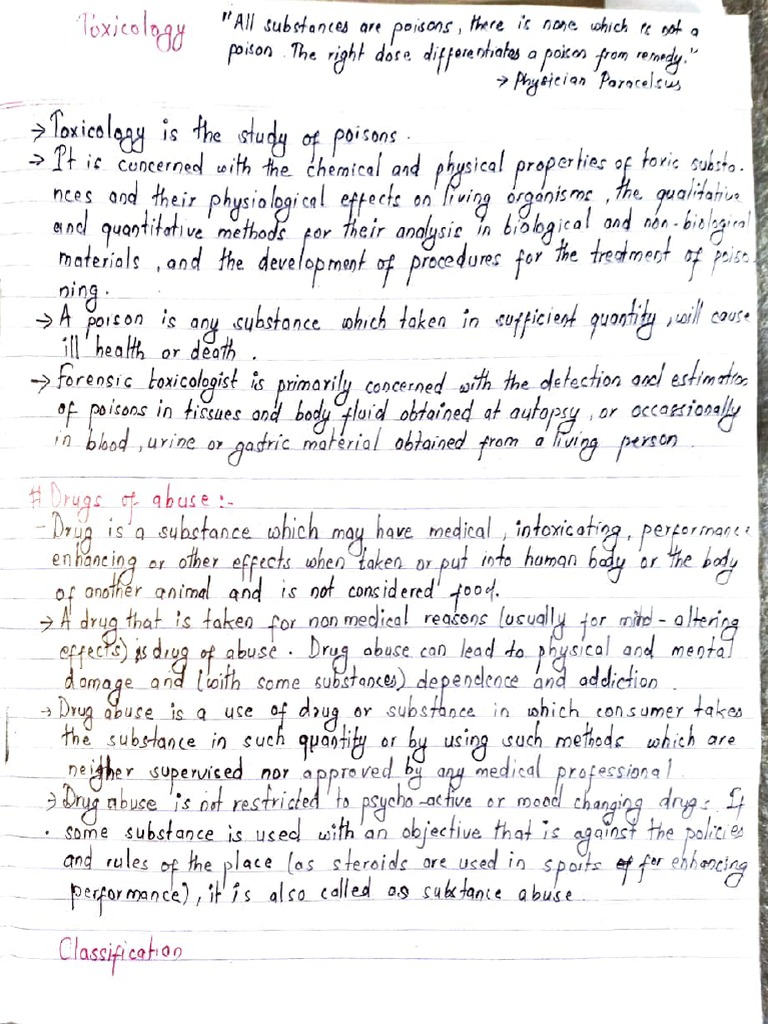 Toxicology "All substances are poisons, there is none which is not a
poison. The right dose differentiates a poison from remedy."
→ Physician Paracelsus
→ Toxicology is the study of poisons.
→ It is concerned with the chemical and physical properties of toxic substa-
nces and their physiological effects on living organisms, the qualitative
and quantitative methods for their analysis in biological and non-biological
materials, and the development of procedures for the treatment of poiso
ning.
→ A poison is any substance which taken in sufficient quantity, will cause
ill health or death.
→ Forensic toxicologist is primarily concerned with the detection and estimation
of poisons in tissues and body fluid obtained at autopsy, or occassionally
in blood, urine or gastric material obtained from a living person.
# Drugs of abuse :-
- Drug is a substance which may have medical, intoxicating, performance
enhancing or other effects when taken or put into human body or the body
of another animal and is not considered food.
→ A drug that is taken for nonmedical reasons (usually for mind-altering
effects) is drug of abuse. Drug abuse can lead to physical and mental
damage and (with some substances) dependence and addiction.
→ Drug abuse is a use of drug or substance in which consumer takes
the substance in such quantity or by using such methods which are
neigher supervised nor approved by any medical professional.
→ Drug abuse is not restricted to psycho-active or mood changing drugs. If
some substance is used with an objective that is against the policies
and rules of the place (as steroids are used in sports for enhancing
performance), it is also called as substance abuse.
Classification